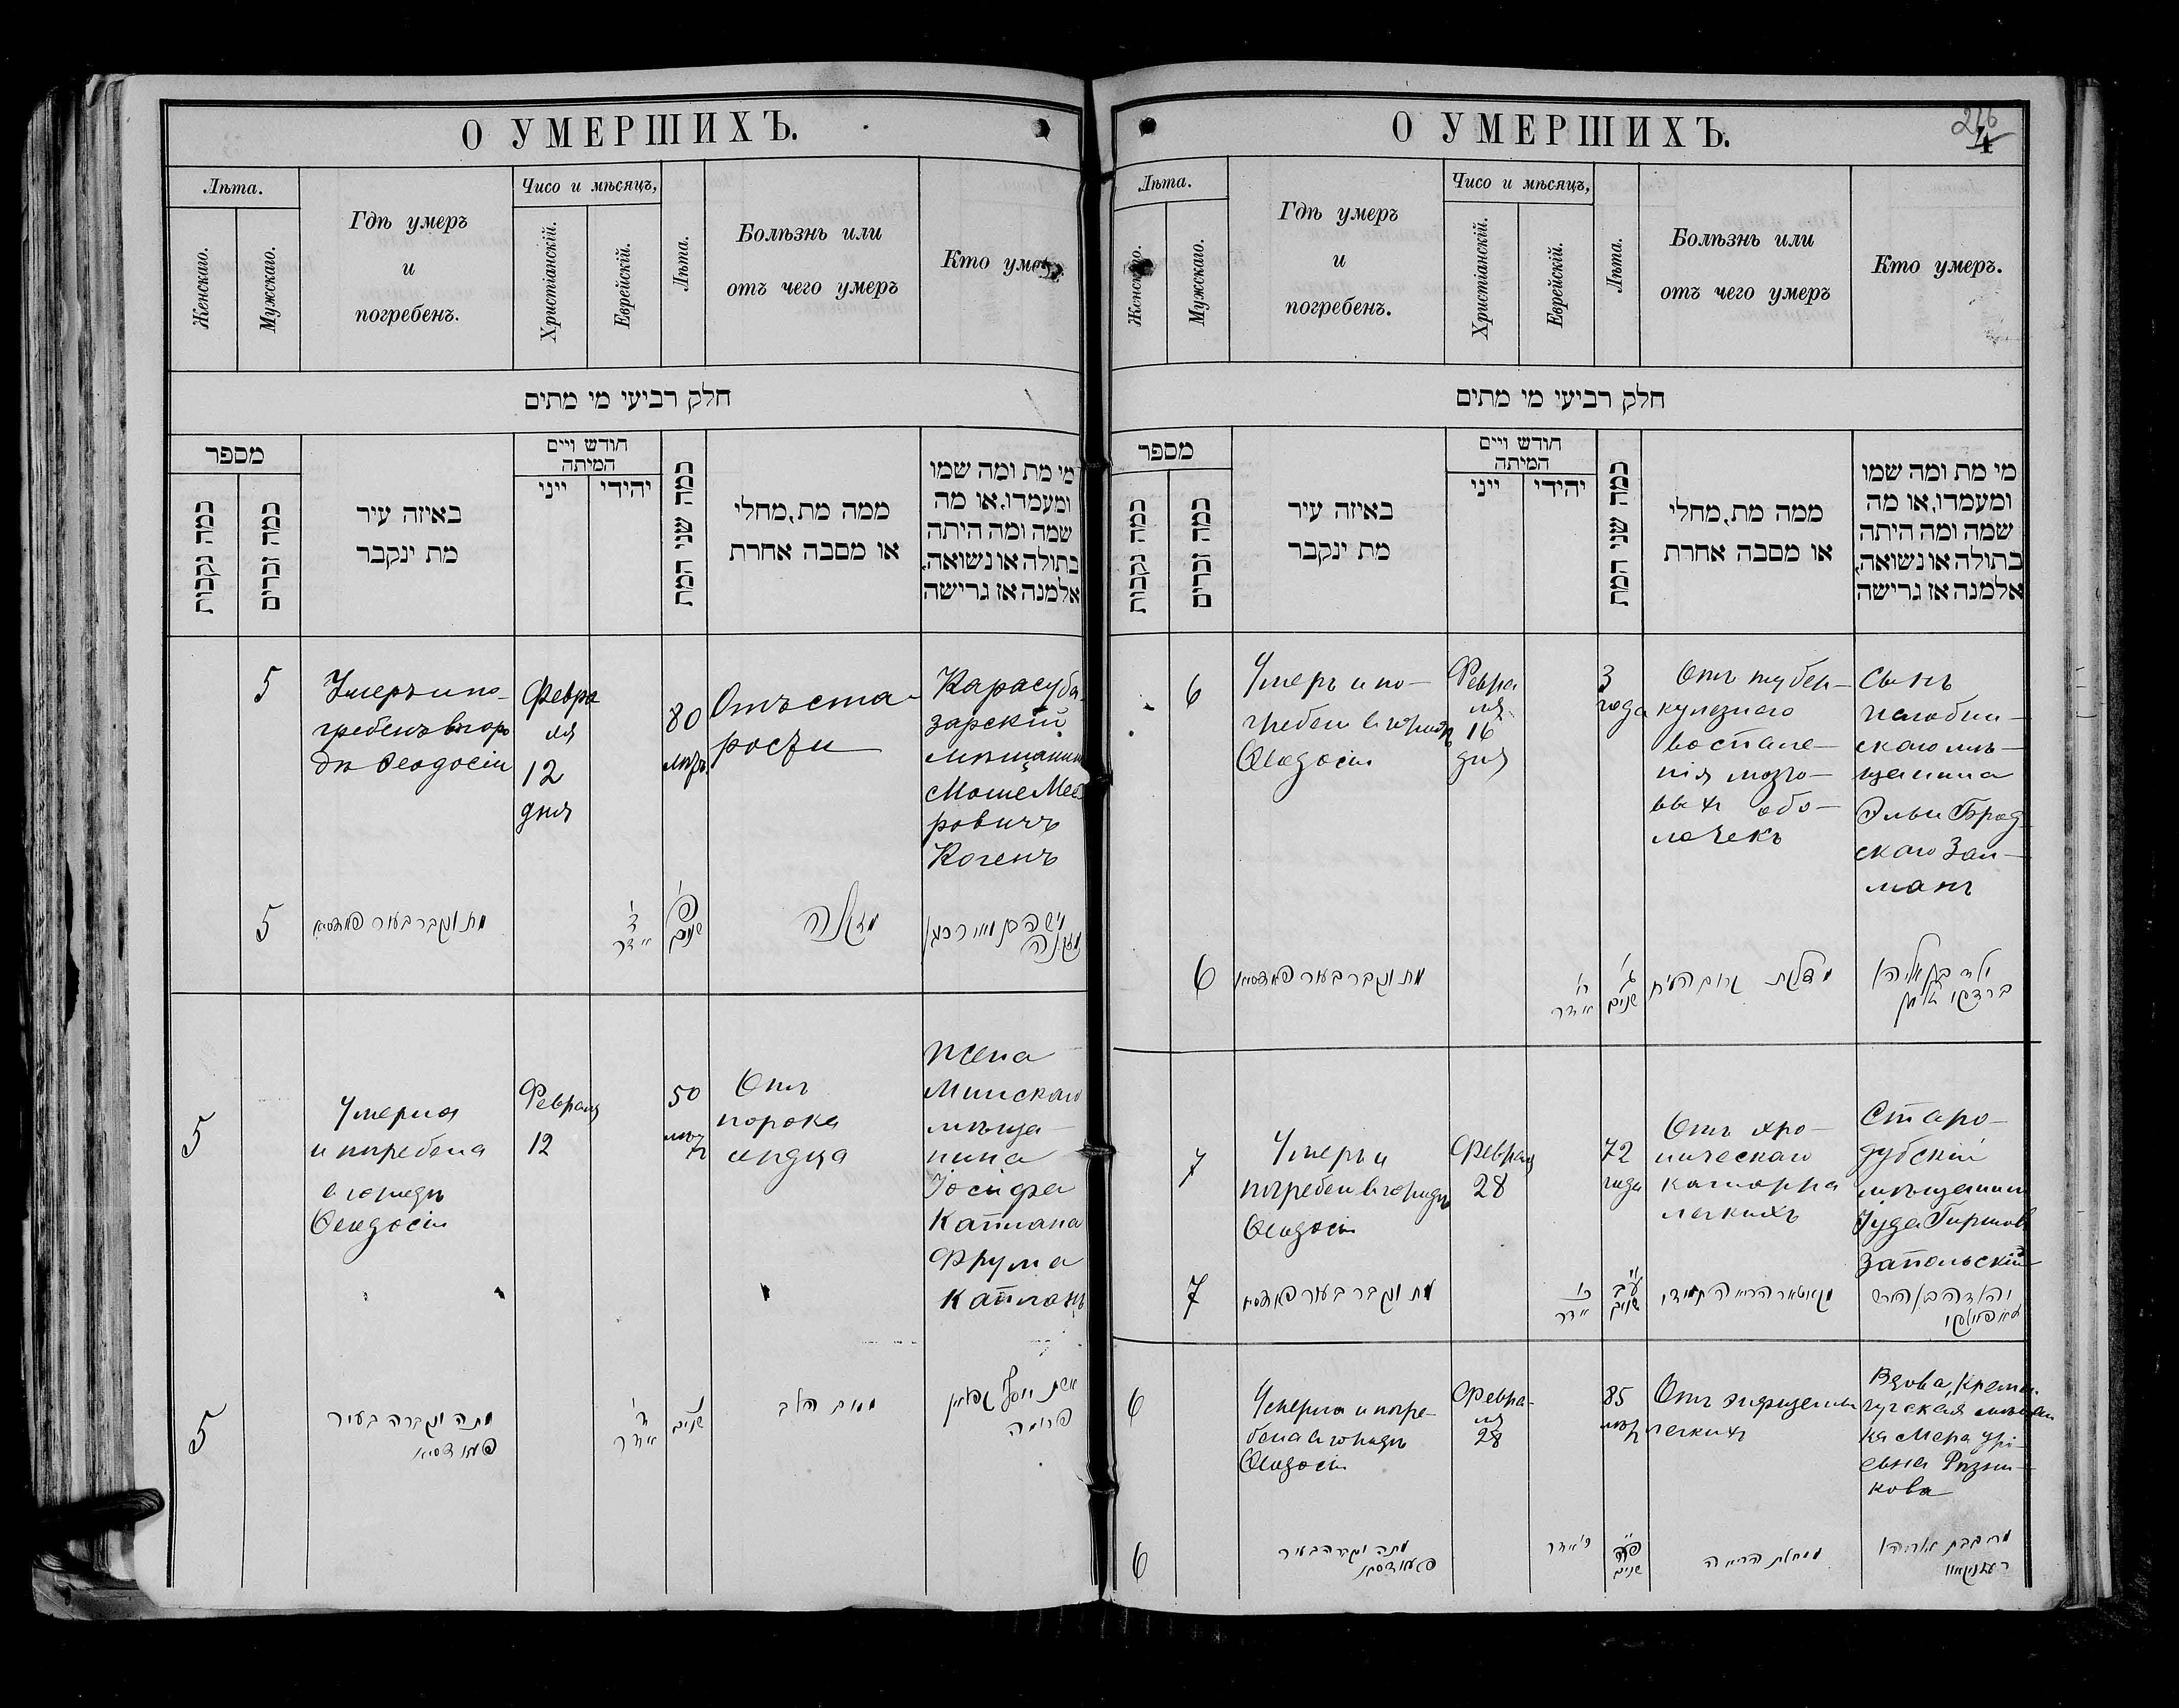 О УМЕРШИХЪ.
Лѣта.
Женскаго.
Мужскаго.
Гдѣ умеръ
и
погребенъ.
Чисо и мѣсяцъ,
Христіанскій.
Еврейскій.
Лѣта.
Болѣзнь или
отъ чего умеръ
Кто умеръ.
חלק רביעי מי מתים
מספר
כמה נקבות
כמה זכרים
באיזה עיר
מת ינקבר
חודש ויים
המיתה
ייני
יהידי
כמה שני המת
ממה מת, מחלי
או מסבה אחרת
מי מת ומה שמו
ומעמדו, או מה
שמה ומה היתה
בתולה או נשואה,
אלמנה אז גרישה
5
Умеръ и по-
гребенъ въ горо
дѣ Ѳеодосіи
Февра
ля
12
дня
80
лѣтъ
Отъ ста-
рости
Карасуба-
зарскій
мѣщанинъ
Моше Меě
ровичъ
Когенъ
5
מת ונקבר בעיר
שנים
מזקנה
5
Умерла
и погребена
въ городѣ
Ѳеодосіи
Февраля
12
50
лѣтъ
Отъ
порока
сердца
Жена
Минскаго
мѣща-
нина
Іосифа
Каплана
Фрума
Капланъ
5
מתה ונקברה בעיר
אדר
שנים
אשת יוסף קאפלאן
פרומה
О УМЕРШИХЪ.
276
4
Лѣта.
Женскаго.
Мужскаго.
Гдѣ умеръ
и
погребенъ.
Чисо и мѣсяцъ,
Христіанскій.
Еврейскій.
Лѣта.
Болѣзнь или
отъ чего умеръ
Кто умеръ.
חלק רביעי מי מתים
מספר
כמה נקבות
כמה זכרים
באיזה עיר
מת ינקבר
חודש ויים
המיתה
ייני
יהידי
כמה שני המת
ממה מת, מחלי
או מסבה אחרת
מי מת ומה שמו
ומעמדו, או מה
שמה ומה היתה
בתולה או נשואה,
אלמנה אז גרישה
6
Умеръ и по-
гребенъ въ городѣ
Ѳеодосіи
Февра
ля
16
дня
3
года
Отъ тубер-
кулезнаго
воспале-
нія мозго-
выхъ обо-
лочекъ
Сынъ
скаго мѣ-
щанина
Эльи Брод
скаго Зал-
манъ
6
מת ונקבר בעיר
אדר
שנים
דלקת קרום המוח
7
Умеръ и
погребенъ въ городѣ
Ѳеодосіи
Февраля
28
72
года
Отъ хро-
ническаго
катарра
легкихъ
Старо-
дубскій
мѣщанинъ
Іуда Гиршовъ
Запольскій
7
מת ונקבר בעיר
אדר
ע״ב
שנים
יהודה בן הירש
6
Умерла и погре-
бена въ городѣ
Ѳеодосіи
Февра-
ля
28
85
лѣтъ
Отъ эмфиземы
легкихъ
Вдова, Кремен-
чугская мѣщан
ка Мера Урі-
евна Рѣзни-
кова
6
מתה ונקברה בעיר
אדר
פ״ה
שנים
מחלת הריאה